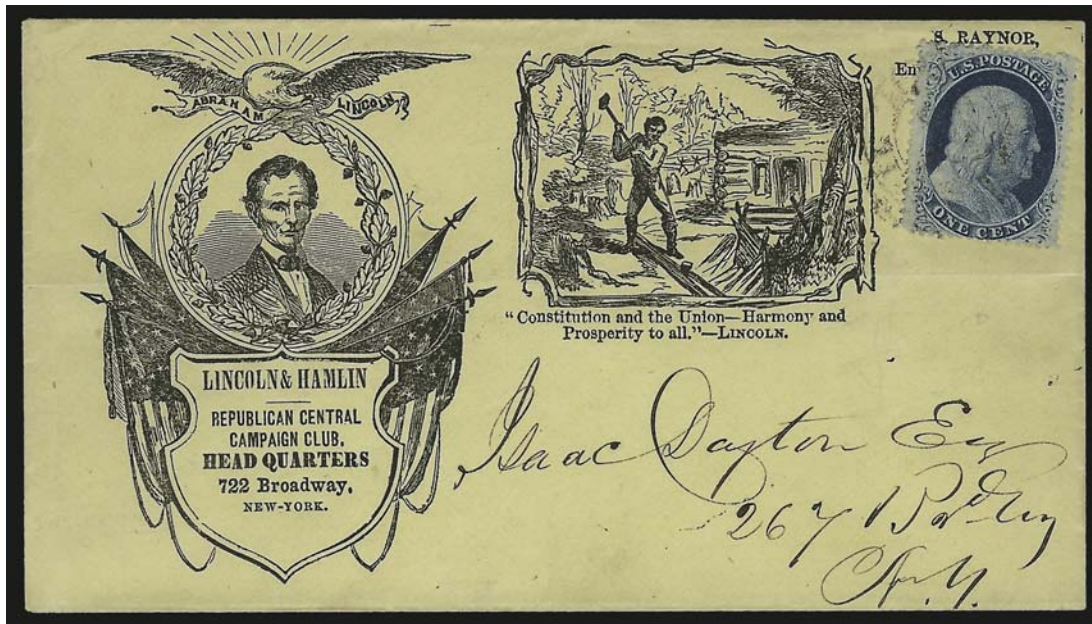 ABRAHAM LINCOLN
LINCOLN & HAMLIN
REPUBLICAN CENTRAL
CAMPAIGN CLUB.
HEAD QUARTERS
722 Broadway,
NEW-YORK.
"Constitution and the Union—Harmony and
Prosperity to all."—LINCOLN.
S. RAYNOR,
En
U.S. POSTAGE
ONE CENT
Isaac Dayton Esq
267 Bdwy
N.Y.